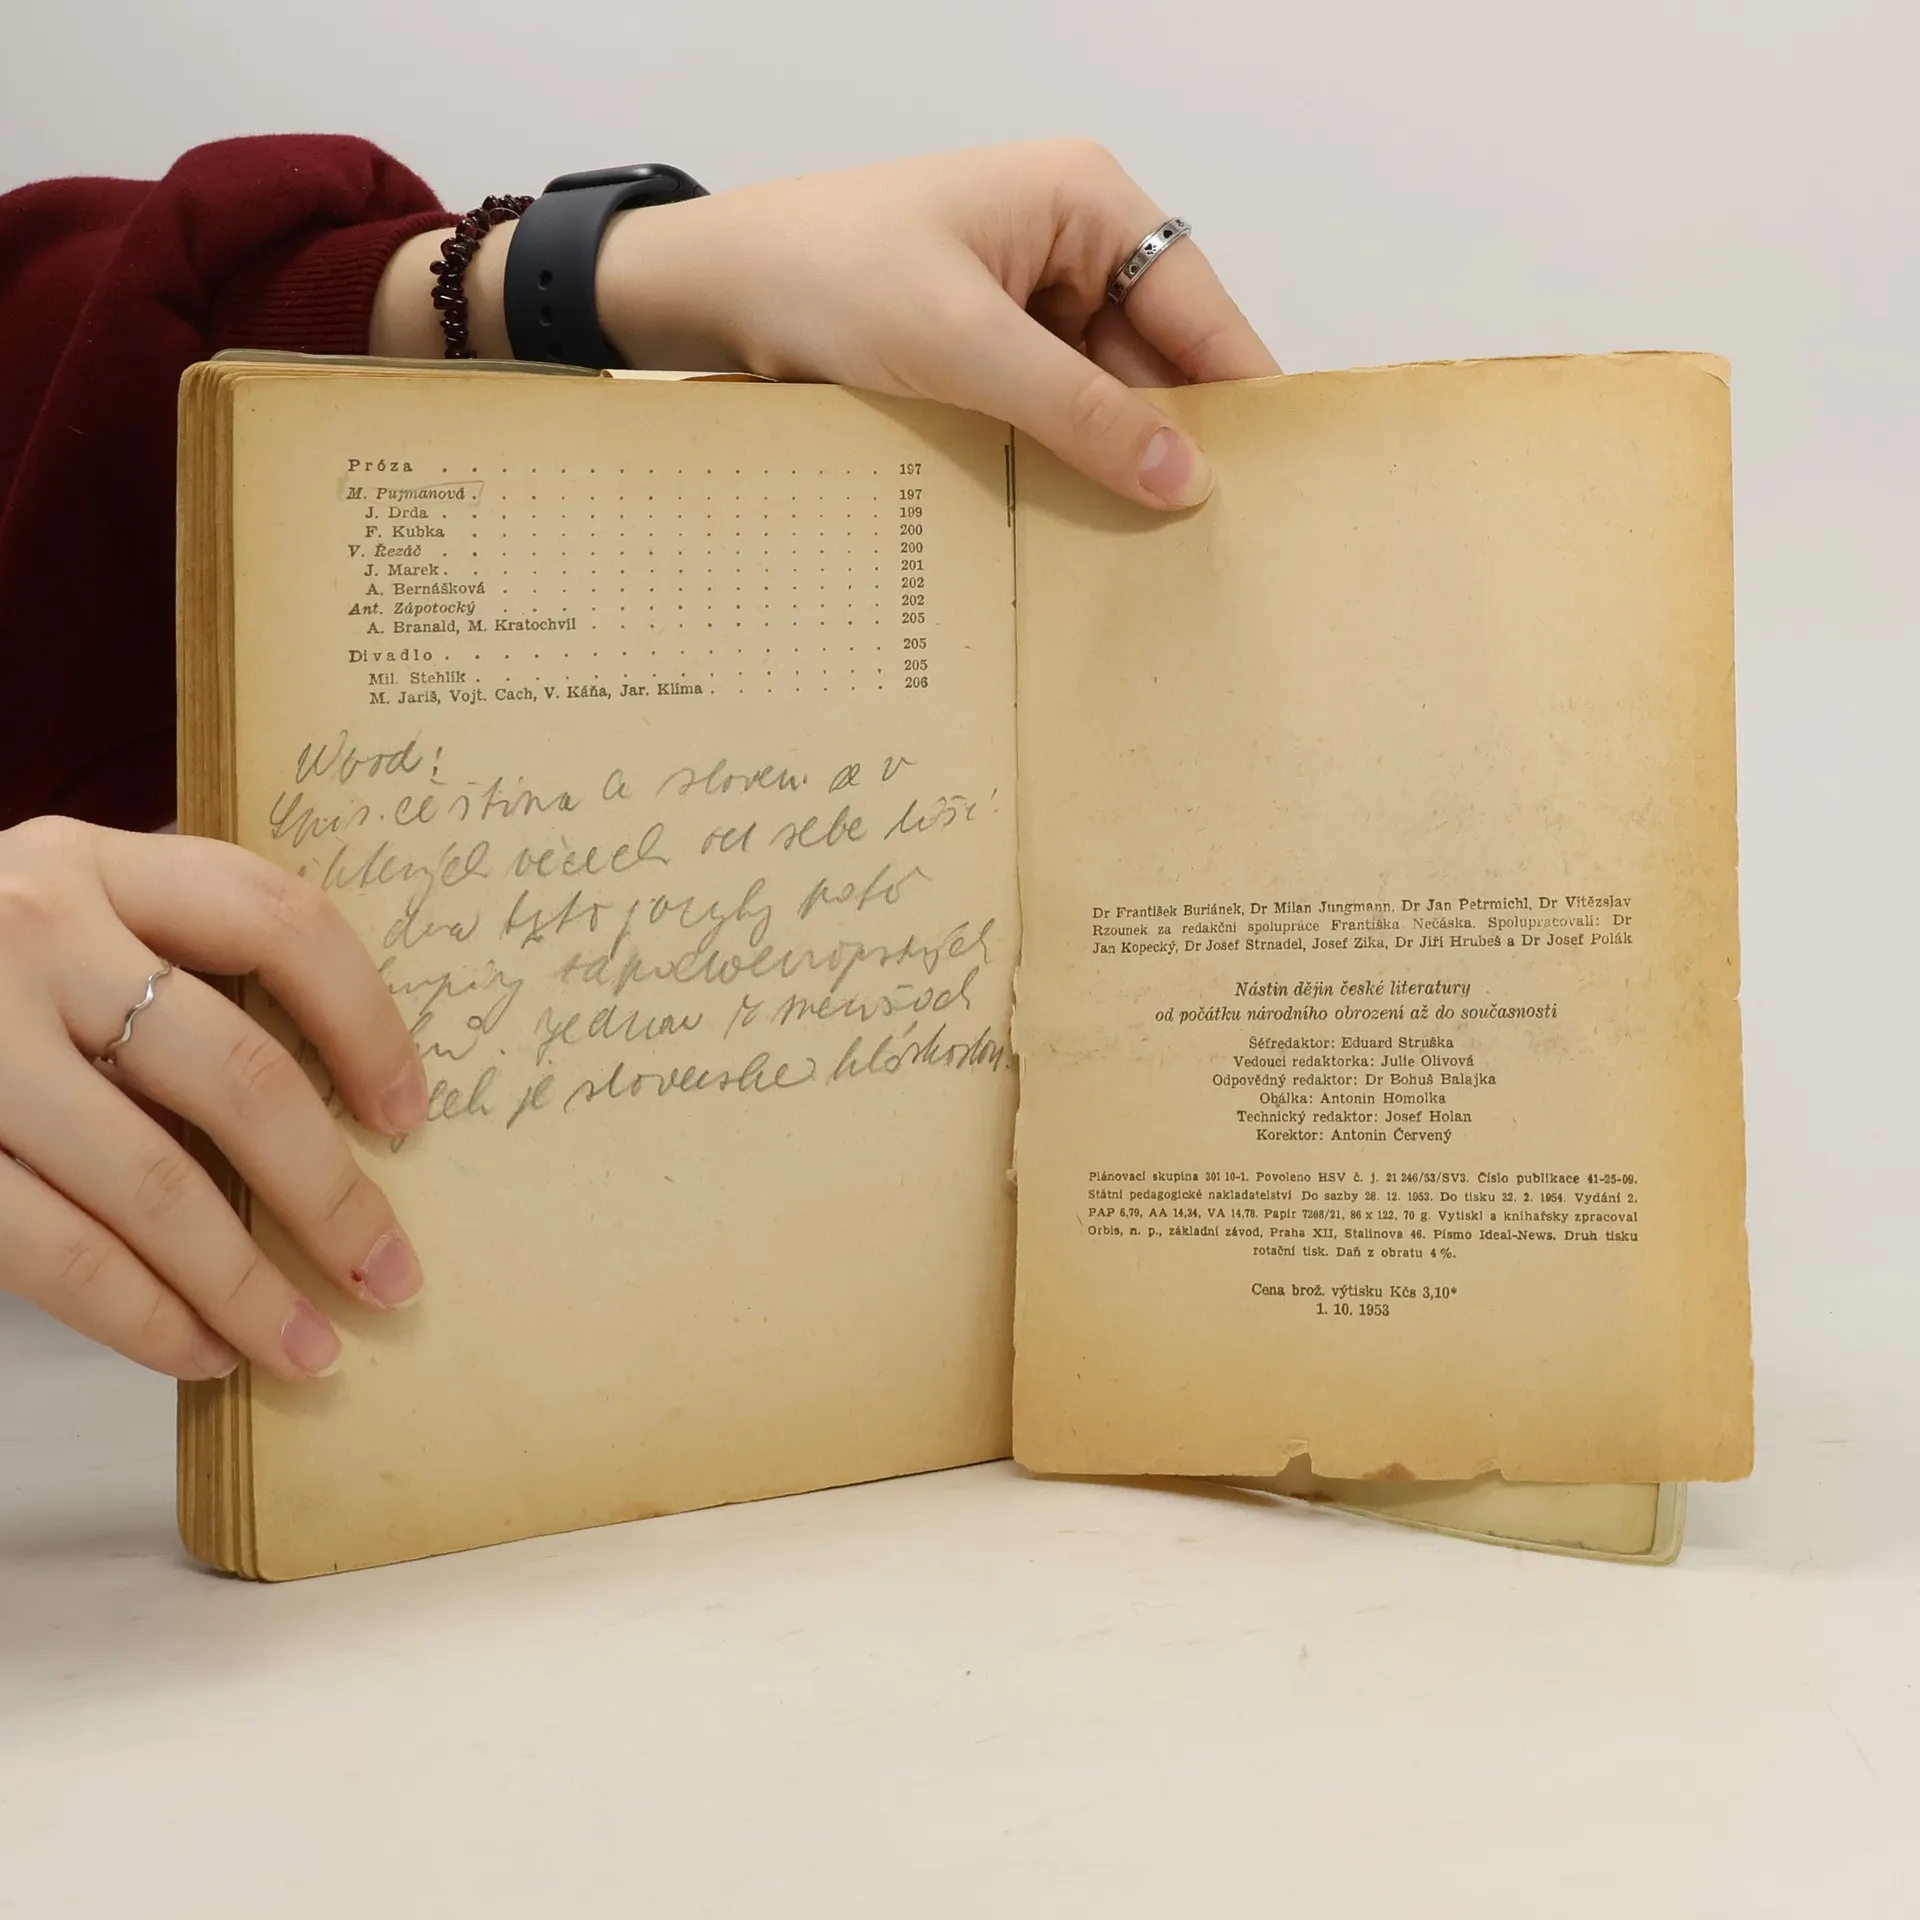 Próza . . . . . . . . . . . . . . . 197
M. Pujmanová . . . . . . . . . . . . . . . 197
J. Drda . . . . . . . . . . . . . . . 199
F. Kubka . . . . . . . . . . . . . . 200
V. Řezáč . . . . . . . . . . . . . . . 200
J. Marek . . . . . . . . . . . . . . . 201
A. Bernášková . . . . . . . . . . . . . 202
Ant. Zápotocký . . . . . . . . . . . . . 202
A. Branald, M. Kratochvil . . . . . . . . . . 205
Divadlo . . . . . . . . . . . . . . . 205
Mil. Stehlík . . . . . . . . . . . . . . 205
M. Jariš, Vojt. Cach, V. Káňa, Jar. Klíma . . . . . . 206
Úvod:
Spis. čeština a sloven. se v
věcech od sebe liší.
dva tyto jazyky patří
západoevropských
jednou z menších
je slovenské
Dr František Buriánek, Dr Milan Jungmann, Dr Jan Petrmichl, Dr Vítězslav
Rzounek za redakční spolupráce Františka Nečáska. Spolupracovali: Dr
Jan Kopecký, Dr Josef Strnadel, Josef Zika, Dr Jiří Hrubeš a Dr Josef Polák
Nástin dějin české literatury
od počátku národního obrození až do současnosti
Šéfredaktor: Eduard Struška
Vedoucí redaktorka: Julie Olivová
Odpovědný redaktor: Dr Bohuš Balajka
Obálka: Antonín Homolka
Technický redaktor: Josef Holan
Korektor: Antonín Červený
Plánovací skupina 301 10-1. Povoleno HSV č. j. 21 246/53/SV3. Číslo publikace 41-25-09.
Státní pedagogické nakladatelství Do sazby 28. 12. 1953. Do tisku 22. 2. 1954. Vydání 2.
PAP 6,79, AA 14,34, VA 14,78. Papír 7208/21, 86 x 122, 70 g. Vytiskl a knihařsky zpracoval
Orbis, n. p., základní závod, Praha XII, Stalinova 46. Písmo Ideal-News. Druh tisku
rotační tisk. Daň z obratu 4 %.
Cena brož. výtisku Kčs 3,10*
1. 10. 1953